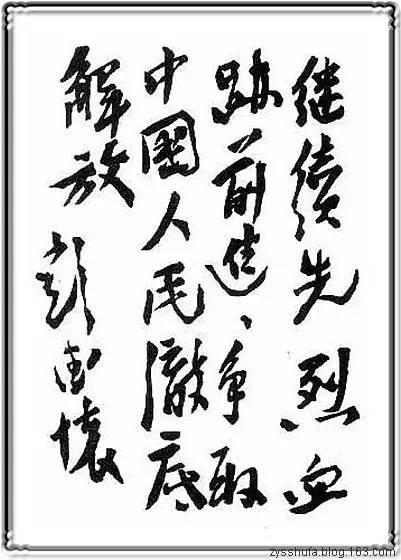 继續先烈血
跡前進、争取
中國人民徹底
解放 彭德懷
zysshufa.blog.163.com